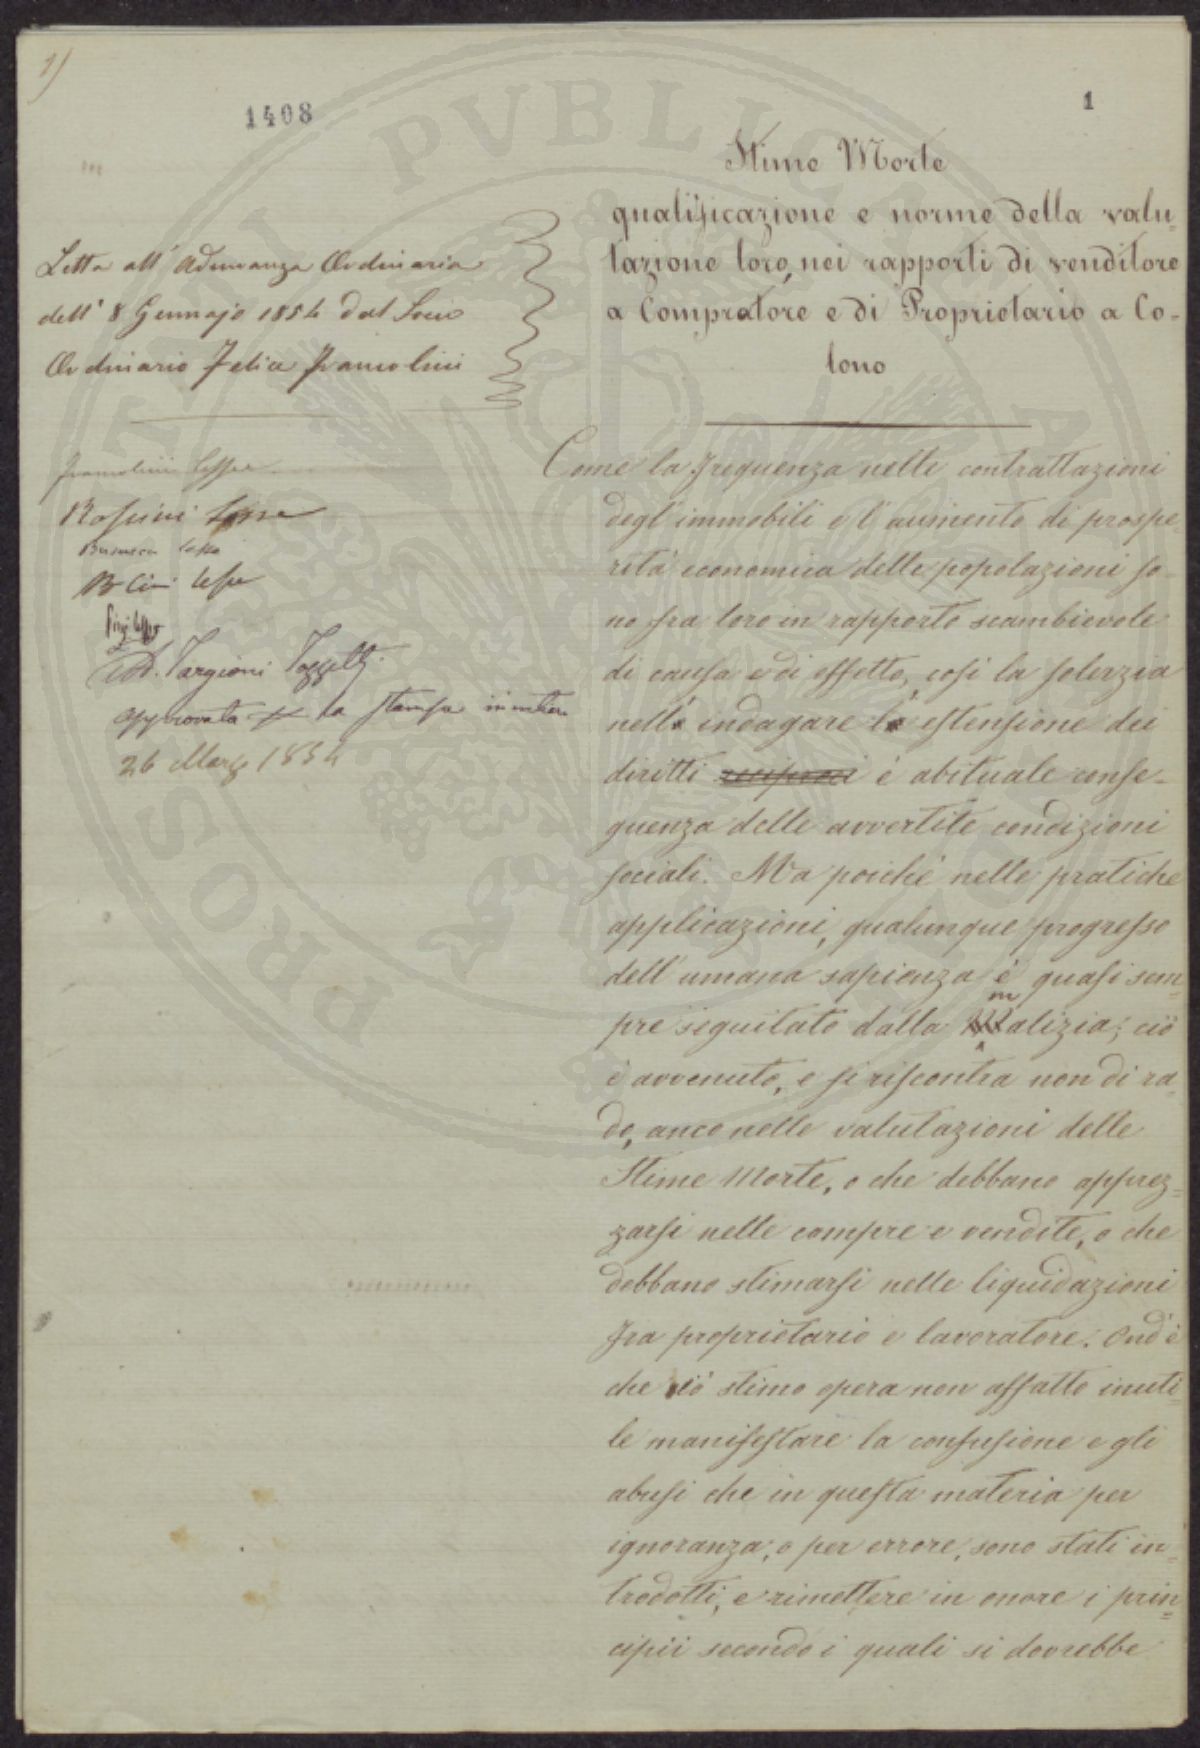 1)
1408
1
Stime Morte
qualificazione e norme della valu-
tazione loro, nei rapporti di venditore
a Compratore e di Proprietario a Co-
lono
Letta all' Adunanza Ordinaria
dell' 8 Gennajo 1854 dal Socio
Ordinario Felice Francolini
Francolini lesse
Rossini lesse
lesse
lesse
A. Targioni Tozzetti
approvata la stampa
26 Marzo 1854
Come la frequenza nelle contrattazioni
degl' immobili e l' aumento di prospe-
rità economica delle popolazioni so-
no fra loro in rapporto scambievole
di causa e di effetto, così la solerzia
nell' indagare l' estensione dei
diritti reciproci è abituale conse-
guenza delle avvertite condizioni
sociali. Ma poichè nelle pratiche
applicazioni, qualunque progresso
dell' umana sapienza è quasi sem-
pre seguitato dalla malizia; ciò
è avvenuto, e si riscontra non di ra-
do, anco nelle valutazioni delle
Stime Morte, o che debbano apprez-
zarsi nelle compre e vendite, o che
debbano stimarsi nelle liquidazioni
fra proprietario e lavoratore. Ond' è
che io stimo opera non affatto inuti-
le manifestare la confusione e gli
abusi che in questa materia per
ignoranza, o per errore, sono stati in-
trodotti, e rimettere in onore i prin-
cipii secondo i quali si dovrebbe